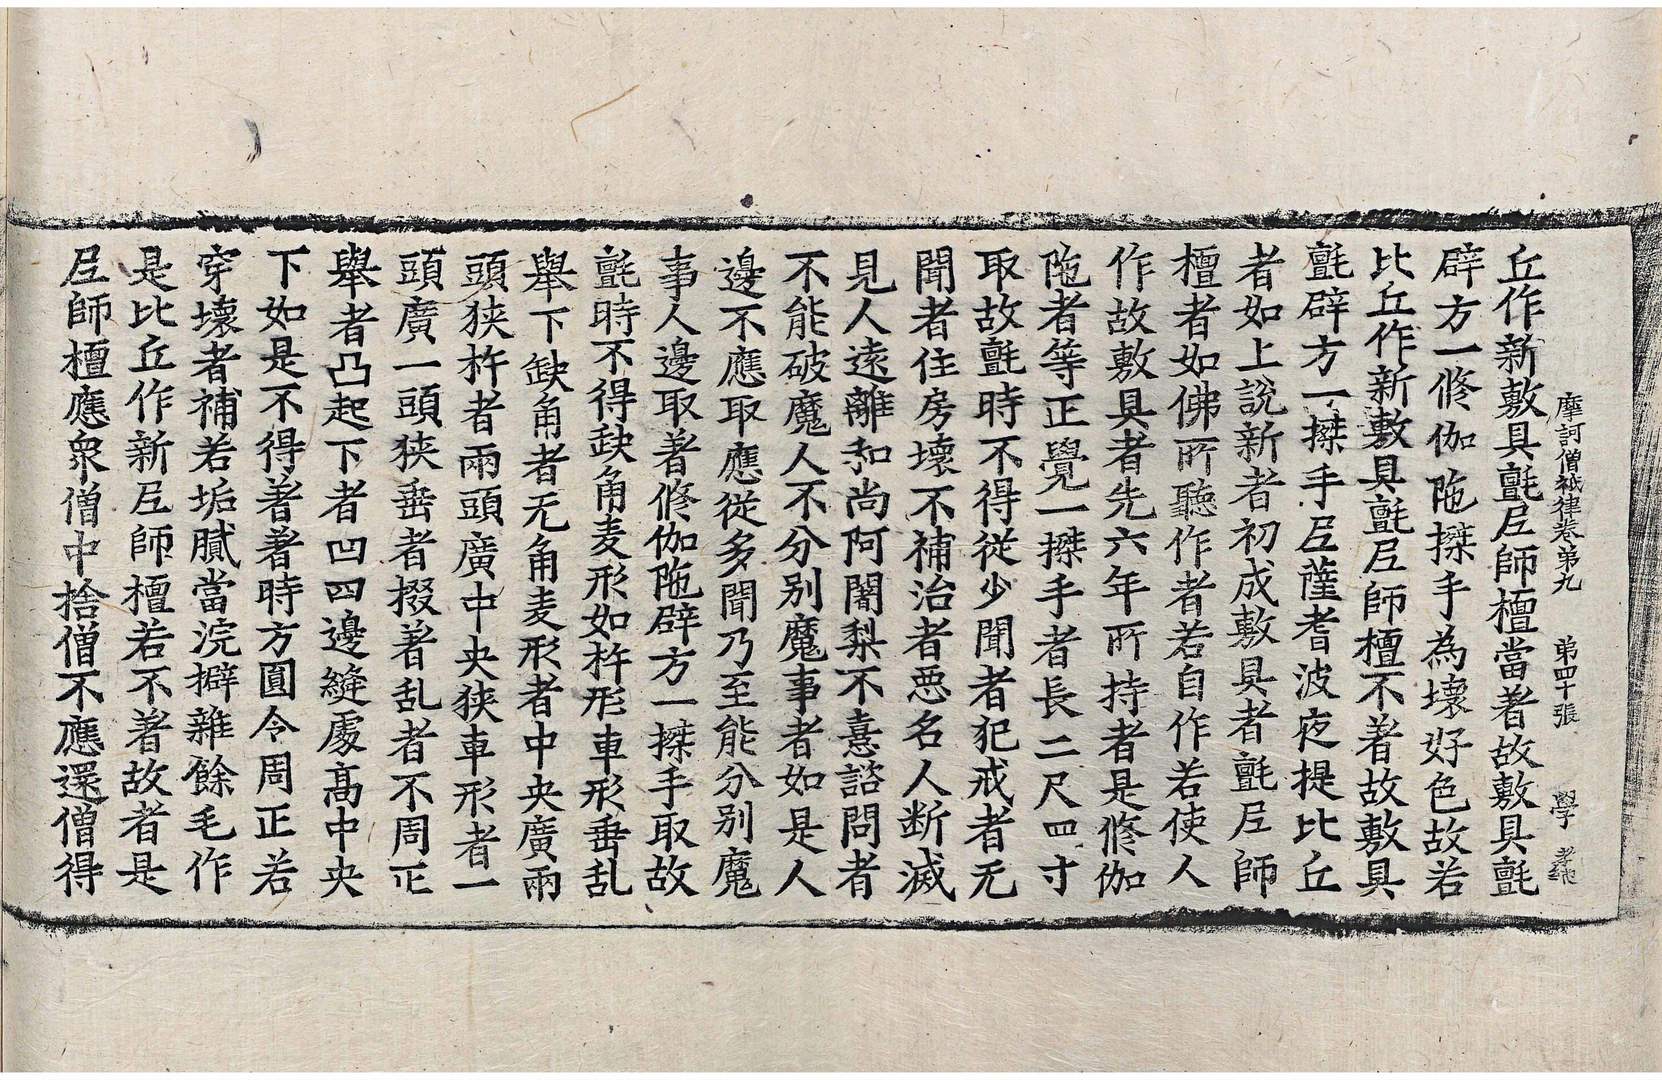 摩訶僧祇律卷第九 第四十張 學
丘作新敷具氈尼師檀當著故敷具氈
辟方一修伽陁搩手為壞好色故若
比丘作新敷具氈尼師檀不著故敷具
氈辟方一搩手尼薩耆波夜提比丘
者如上說新者初成敷具者氈尼師
檀者如佛所聽作者若自作若使人
作故敷具者先六年所持者是修伽
陁者等正覺一搩手者長二尺四寸
取故氈時不得從少聞者犯戒者无
聞者住房壞不補治者惡名人断滅
見人遠離和尚阿闍梨不憙諮問者
不能破魔人不分別魔事者如是人
邊不應取應從多聞乃至能分別魔
事人邊取著修伽陁辟方一搩手取故
氈時不得缺角麦形如杵形車形垂乱
舉下缺角者无角麦形者中央廣兩
頭狹杵者兩頭廣中央狹車形者一
頭廣一頭狹垂者掇著乱者不周正
舉者凸起下者凹四邊縫處高中央
下如是不得著著時方圓令周正若
穿壞者補若垢膩當浣擗雜餘毛作
是比丘作新尼師檀若不著故者是
尼師檀應衆僧中捨僧不應還僧得